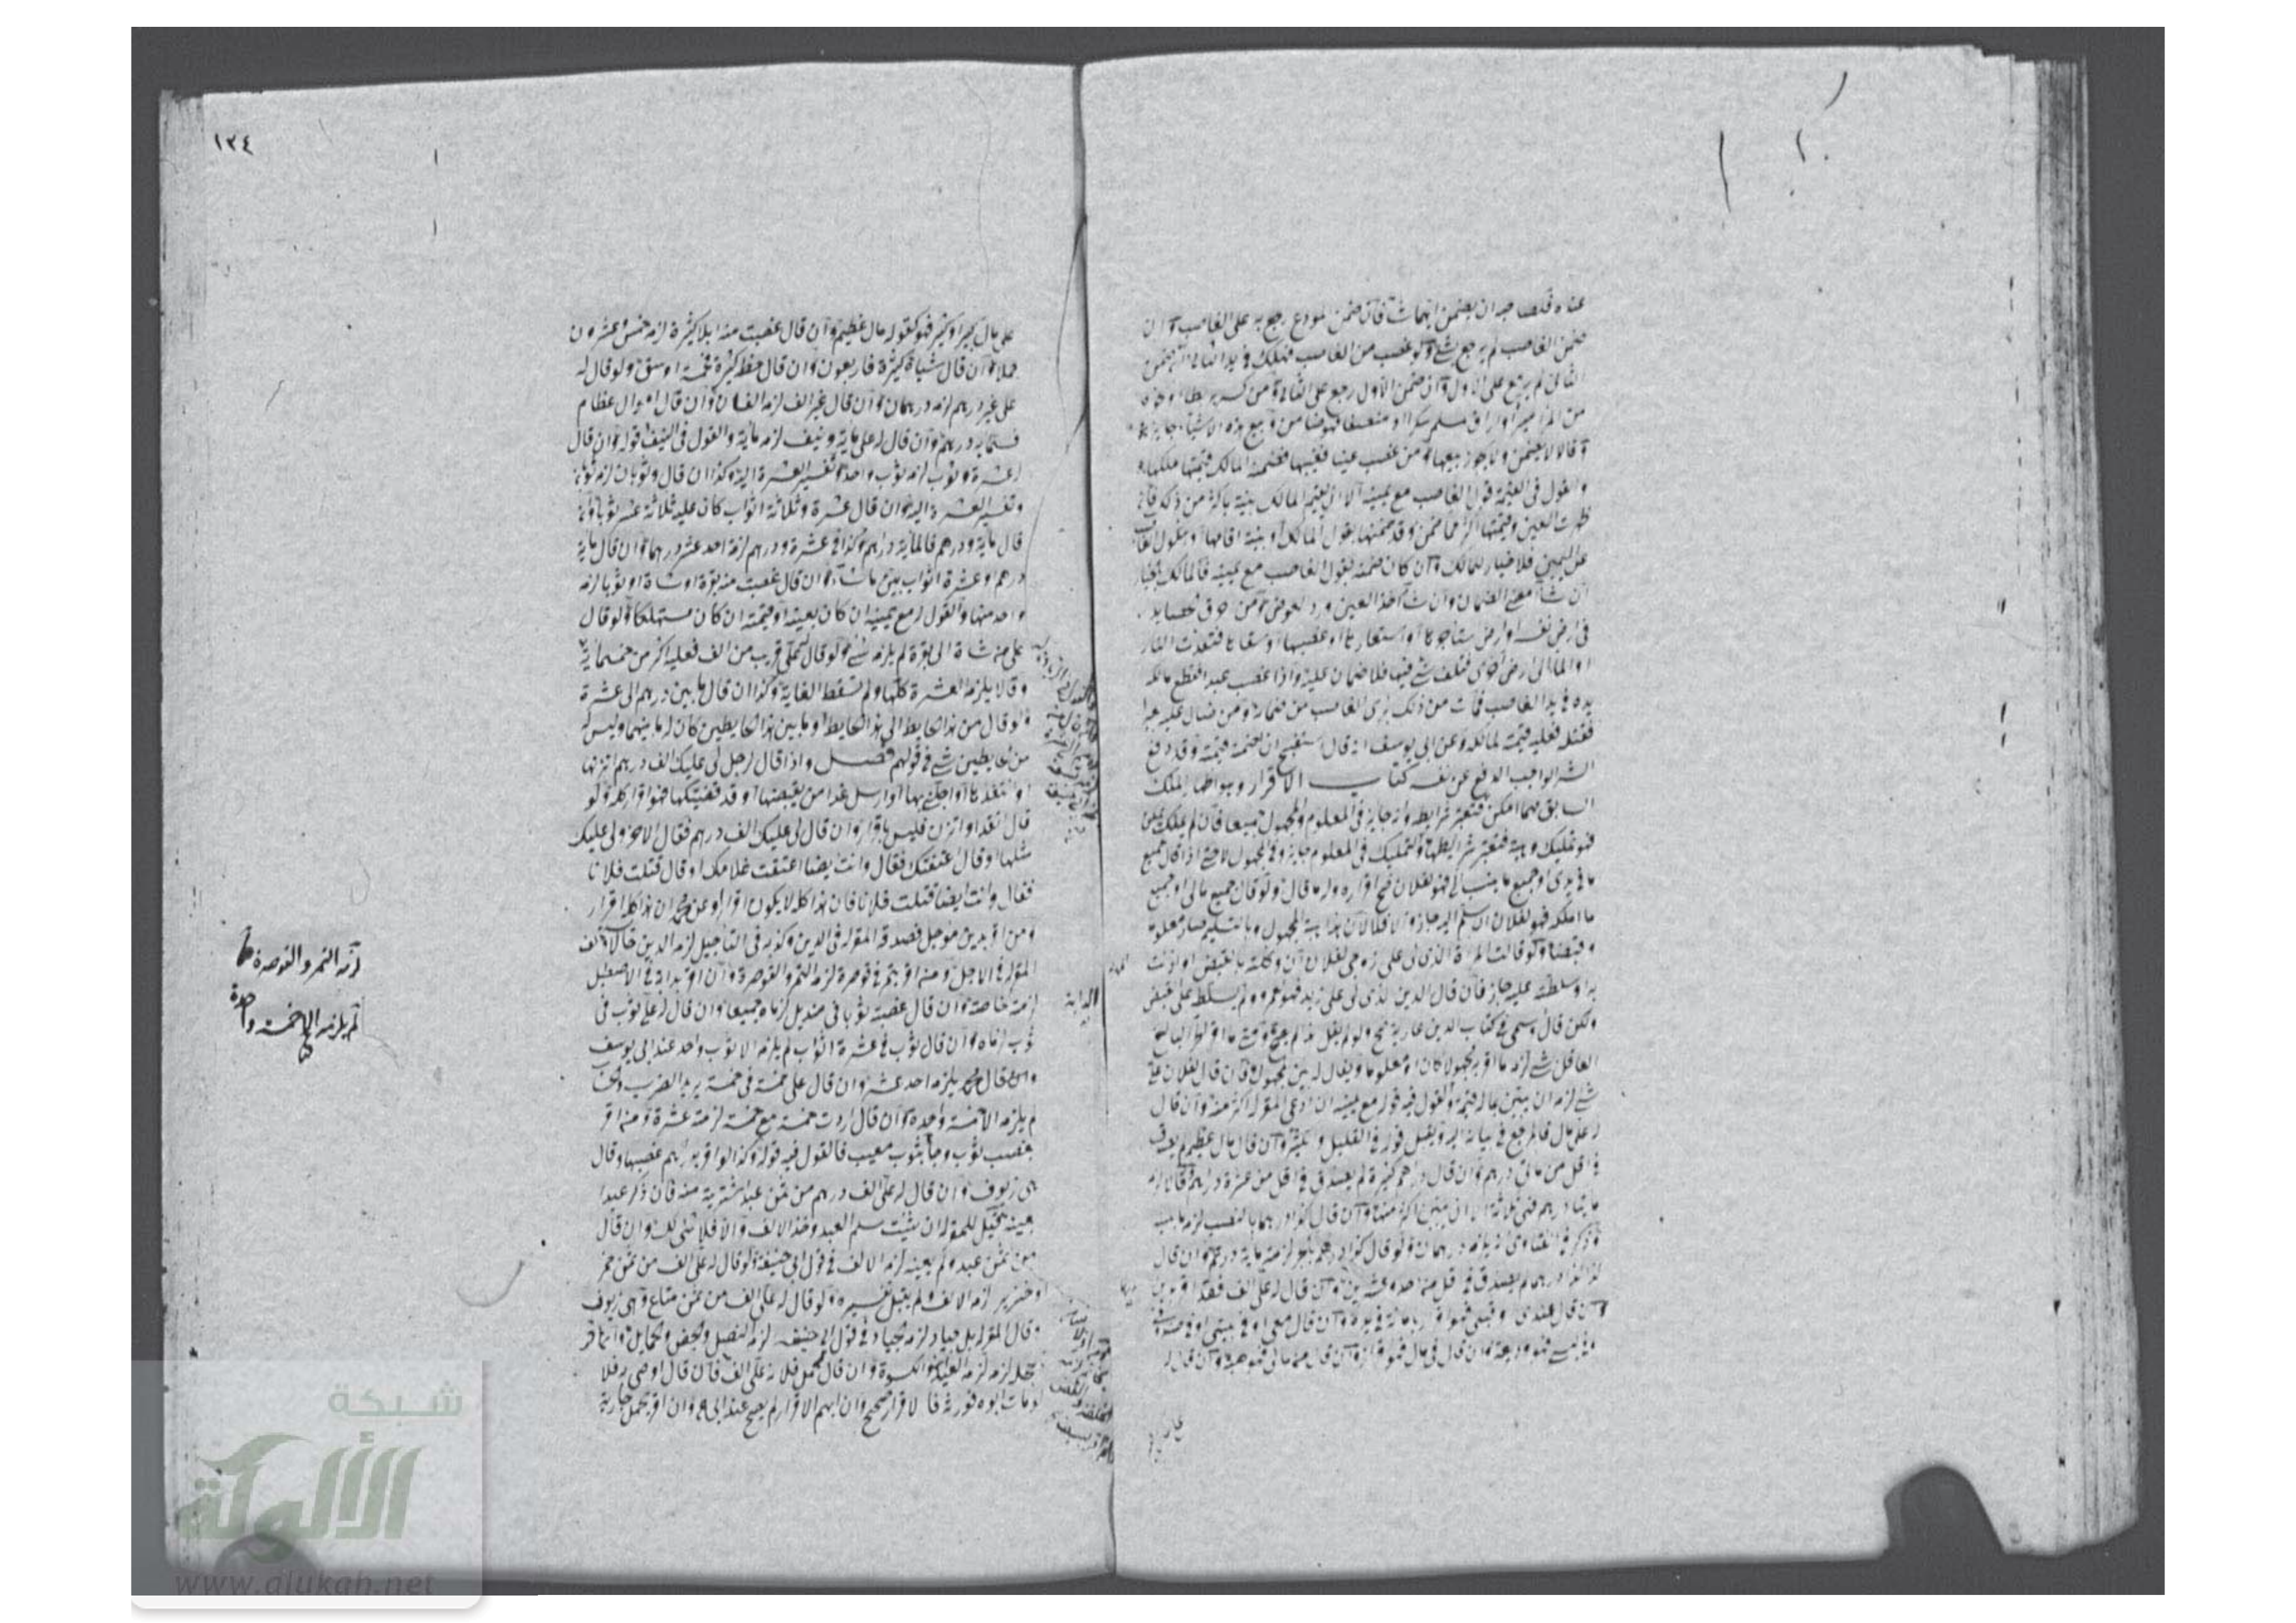 عنده فلصاحبه ان يضمن ايهما شآ فان ضمن المودع رجع به على الغاصب وان
ضمن الغاصب لم يرجع بشئ ولو غصب من الغاصب فهلك في يد الثاني ان ضمن
الثاني لم يرجع على الاول وان ضمن الاول رجع على الثاني ومن كسر
من المزامير او اراق لمسلم سكرا او منصفا فهو ضامن وبيع هذه الاشيآء جايز
وقالا لا يضمن ولا يجوز بيعها ومن غصب عينا فغيبها فضمنه المالك قيمتها ملكها
والقول في القيمة قول الغاصب مع يمينه الا ان يقيم المالك بينة باكثر من ذلك فان
ظهرت العين وقيمتها اكثر مما ضمن وقد ضمنها بقول المالك او ببينة اقامها او بنكول الغاصب
عن اليمين فلا خيار للمالك وان كان ضمنه بقول الغاصب مع يمينه فالمالك بالخيار
ان شآ امضى الضمان وان شآ اخذ العين ورد العوض ومن حرق حصايد
في ارض نفسه او ارض ستاجرها او استعارها او غصبها او سقاها فتعدت النار
او المآ الى ارض اخرى فتلف شئ فيها فلا ضمان عليه واذا غصب عبدا فقطع مالكه
يده في يد الغاصب فمات من ذلك برئ الغاصب من ضمانه ومن صال عليه عبد
فقتله فعليه قيمته لمالكه وعن ابي يوسف انه قال استقبح ان يضمنه قيمته وقد دفع
الشر الواجب الدفع عن نفسه كتاب الاقرار وهو اظهار الملك
السابق مهما امكن فتعتبر شرايطه وانه جايز في المعلوم والمجهول جميعا فان لم يكن
فهو تمليك وهبة فتعتبر شرايطها والتمليك في المعلوم جايز وفي المجهول لا حتى اذا قال جميع
ما في يدي او جميع ما ينسب الي فهو لفلان صح اقراره وله ما قال ولو قال جميع مالي او جميع
ما املكه فهو لفلان ان سلم اليه جاز والا فلا لان هذا هبة المجهول وبالتسليم صار معلوما
وقبضا ولو قالت المرأة الذي لي على زوجي لفلان ان وكلته بالقبض او اذنت
او سلطته عليه جاز فان قال الدين الذي لي على زيد فهو لعمرو ولم يسلط على قبض
ولكن قال وسمى في كتاب الدين عارية صح ولو لم يقل هذا لم يصح ومتى ما اقر الحر البالغ
العاقل بشئ لزمه ما اقر به مجهولا كان او معلوما ويقال له بين المجهول فان قال لفلان علي
شئ لزمه ان يبين ما له قيمة والقول فيه قوله مع يمينه ان ادعى المقر له اكثر منه وان قال
له علي مال فالمرجع في بيانه اليه ويقبل قوله في القليل والكثير وان قال مال عظيم لم يصدق
في اقل من مائتي درهم وان قال دراهم كثيرة لم يصدق في اقل من عشرة دراهم وقالا لزمه
مايتا درهم فهي ثلاثة الا ان يبين اكثر منها وان قال كذا درهما بالنصب لزمه
وذكر في الفتاوى انه يلزمه درهمان ولو قال كذا درهم بالجر لزمته ماية درهم وان قال
كذا كذا درهما لم يصدق في اقل من احد وعشرين وان قال له علي الف فقد اقر بدين
وان قال عندي وقبلي فهو اقرار بامانة في يده وان قال معي او في بيتي او في صندوقي
او كيسي فهو وديعة وان قال في مالي فهو اقرار وان قال من مالي فهو هبة وان قال له
١٣٤
علي مال كبير او كثير فهو كقوله مال عظيم وان قال غصبت منه ابلا كثيرة لزمه خمس وعشرون
جملا وان قال شياة كثيرة فاربعون وان قال حنطة كثيرة فخمسة اوسق ولو قال له
علي غير درهم لزمه درهمان وان قال غير الف لزمه الفان وان قال اموال عظام
فستماية درهم وان قال له علي ماية ونيف لزمه ماية والقول في النيف قوله وان قال
عشرة وثوب لزمه ثوب واحد وتفسير العشرة اليه وكذا ان قال وثوبان لزمه ثوبان
وتفسير العشرة اليه وان قال عشرة وثلاثة اثواب كان عليه ثلاثة عشر ثوبا وان
قال ماية ودرهم فالماية دراهم وكذا في عشرة ودرهم لزمه احد عشر درهما وان قال ماية
درهم او عشرة اثواب بين ما شآء وان قال غصبت منه بقرة او شاة او ثوبا لزمه
واحد منها والقول له مع يمينه ان كان بعينه او قيمته ان كان مستهلكا ولو قال
علي من شاة الى بقرة لم يلزمه شئ ولو قال له علي قريب من الف فعليه اكثر من خمسماية
وقالا يلزمه العشرة كلها ولم تسقط الغاية وكذا ان قال ما بين درهم الى عشرة
ولو قال من هذا الحايط الى هذا الحايط او ما بين هذا الحايطين كان له ما بينهما وليس له
من الحايطين شئ في قولهم فصل واذا قال لرجل لي عليك الف درهم اتزنها
او انتقدها او اجلني بها او ارسل غدا من يقبضها او قد قضيتكها فهو اقرار كله ولو
قال انقد او اتزن فليس باقرار وان قال لي عليك الف درهم فقال الاخر ولي عليك
مثلها او قال اعتقتك فقال وانت ايضا اعتقت غلامك او قال قتلت فلانا
فقال وانت ايضا قتلت فلانا فان هذا كله لا يكون اقرار وعن محمد ان هذا كله اقرار
ومن اقر بدين موجل فصدقه المقر له في الدين وكذبه في التأجيل لزمه الدين حالا
المقر له في الاجل ومن اقر بتمر في قوصرة لزمه التمر والقوصرة وان اقر بدابة في الاصطبل
لزمته خاصة وان قال غصبته ثوبا في منديل لزماه جميعا وان قال له علي ثوب في
ثوب لزماه وان قال ثوب في عشرة اثواب لم يلزمه الا ثوب واحد عند ابي يوسف
وقال محمد يلزمه احد عشر وان قال علي خمسة في خمسة يريد الضرب
لم يلزمه الا خمسة واحدة وان قال اردت خمسة مع خمسة لزمته عشرة ومن اقر
بغصب ثوب وجآ بثوب معيب فالقول فيه قوله وكذا لو اقر بدراهم غصبها وقال
هي زيوف وان قال له علي الف درهم من ثمن عبد اشتريته منه فان ذكر عبدا
بعينه قيل للمقر له ان شئت سلم العبد وخذ الالف والا فلا شئ لك وان قال
من ثمن عبد ولم يعينه لزمه الالف في قول ابي حنيفة ولو قال له علي الف من ثمن خمر
او خنزير لزمه الالف ولم يقبل تفسيره ولو قال له علي الف من ثمن متاع وهي زيوف
وقال المقر له بل جياد لزمه الجياد في قول ابي حنيفة
لزمه العيدان والكسوة وان قال لحمل فلانة علي الف فان قال اوصى به فلان
او مات ابوه فورثه فالاقرار صحيح وان ابهم الاقرار لم يصح عند ابي وان اقر بحمل جارية
لزمه التمر والقوصرة
لم يلزمه الا خمسة واحدة
الدابة
شبكة
الألوكة
www.alukah.net